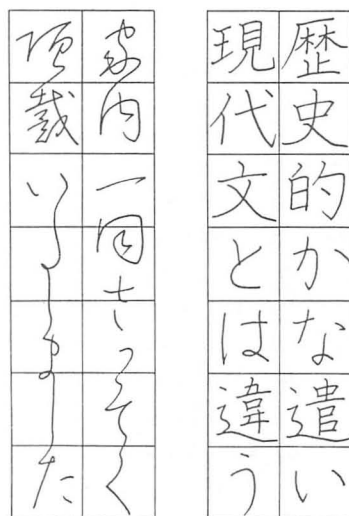 歴史的かな遣い
現代文とは違う
家内一同さっそく
頂戴いたしました